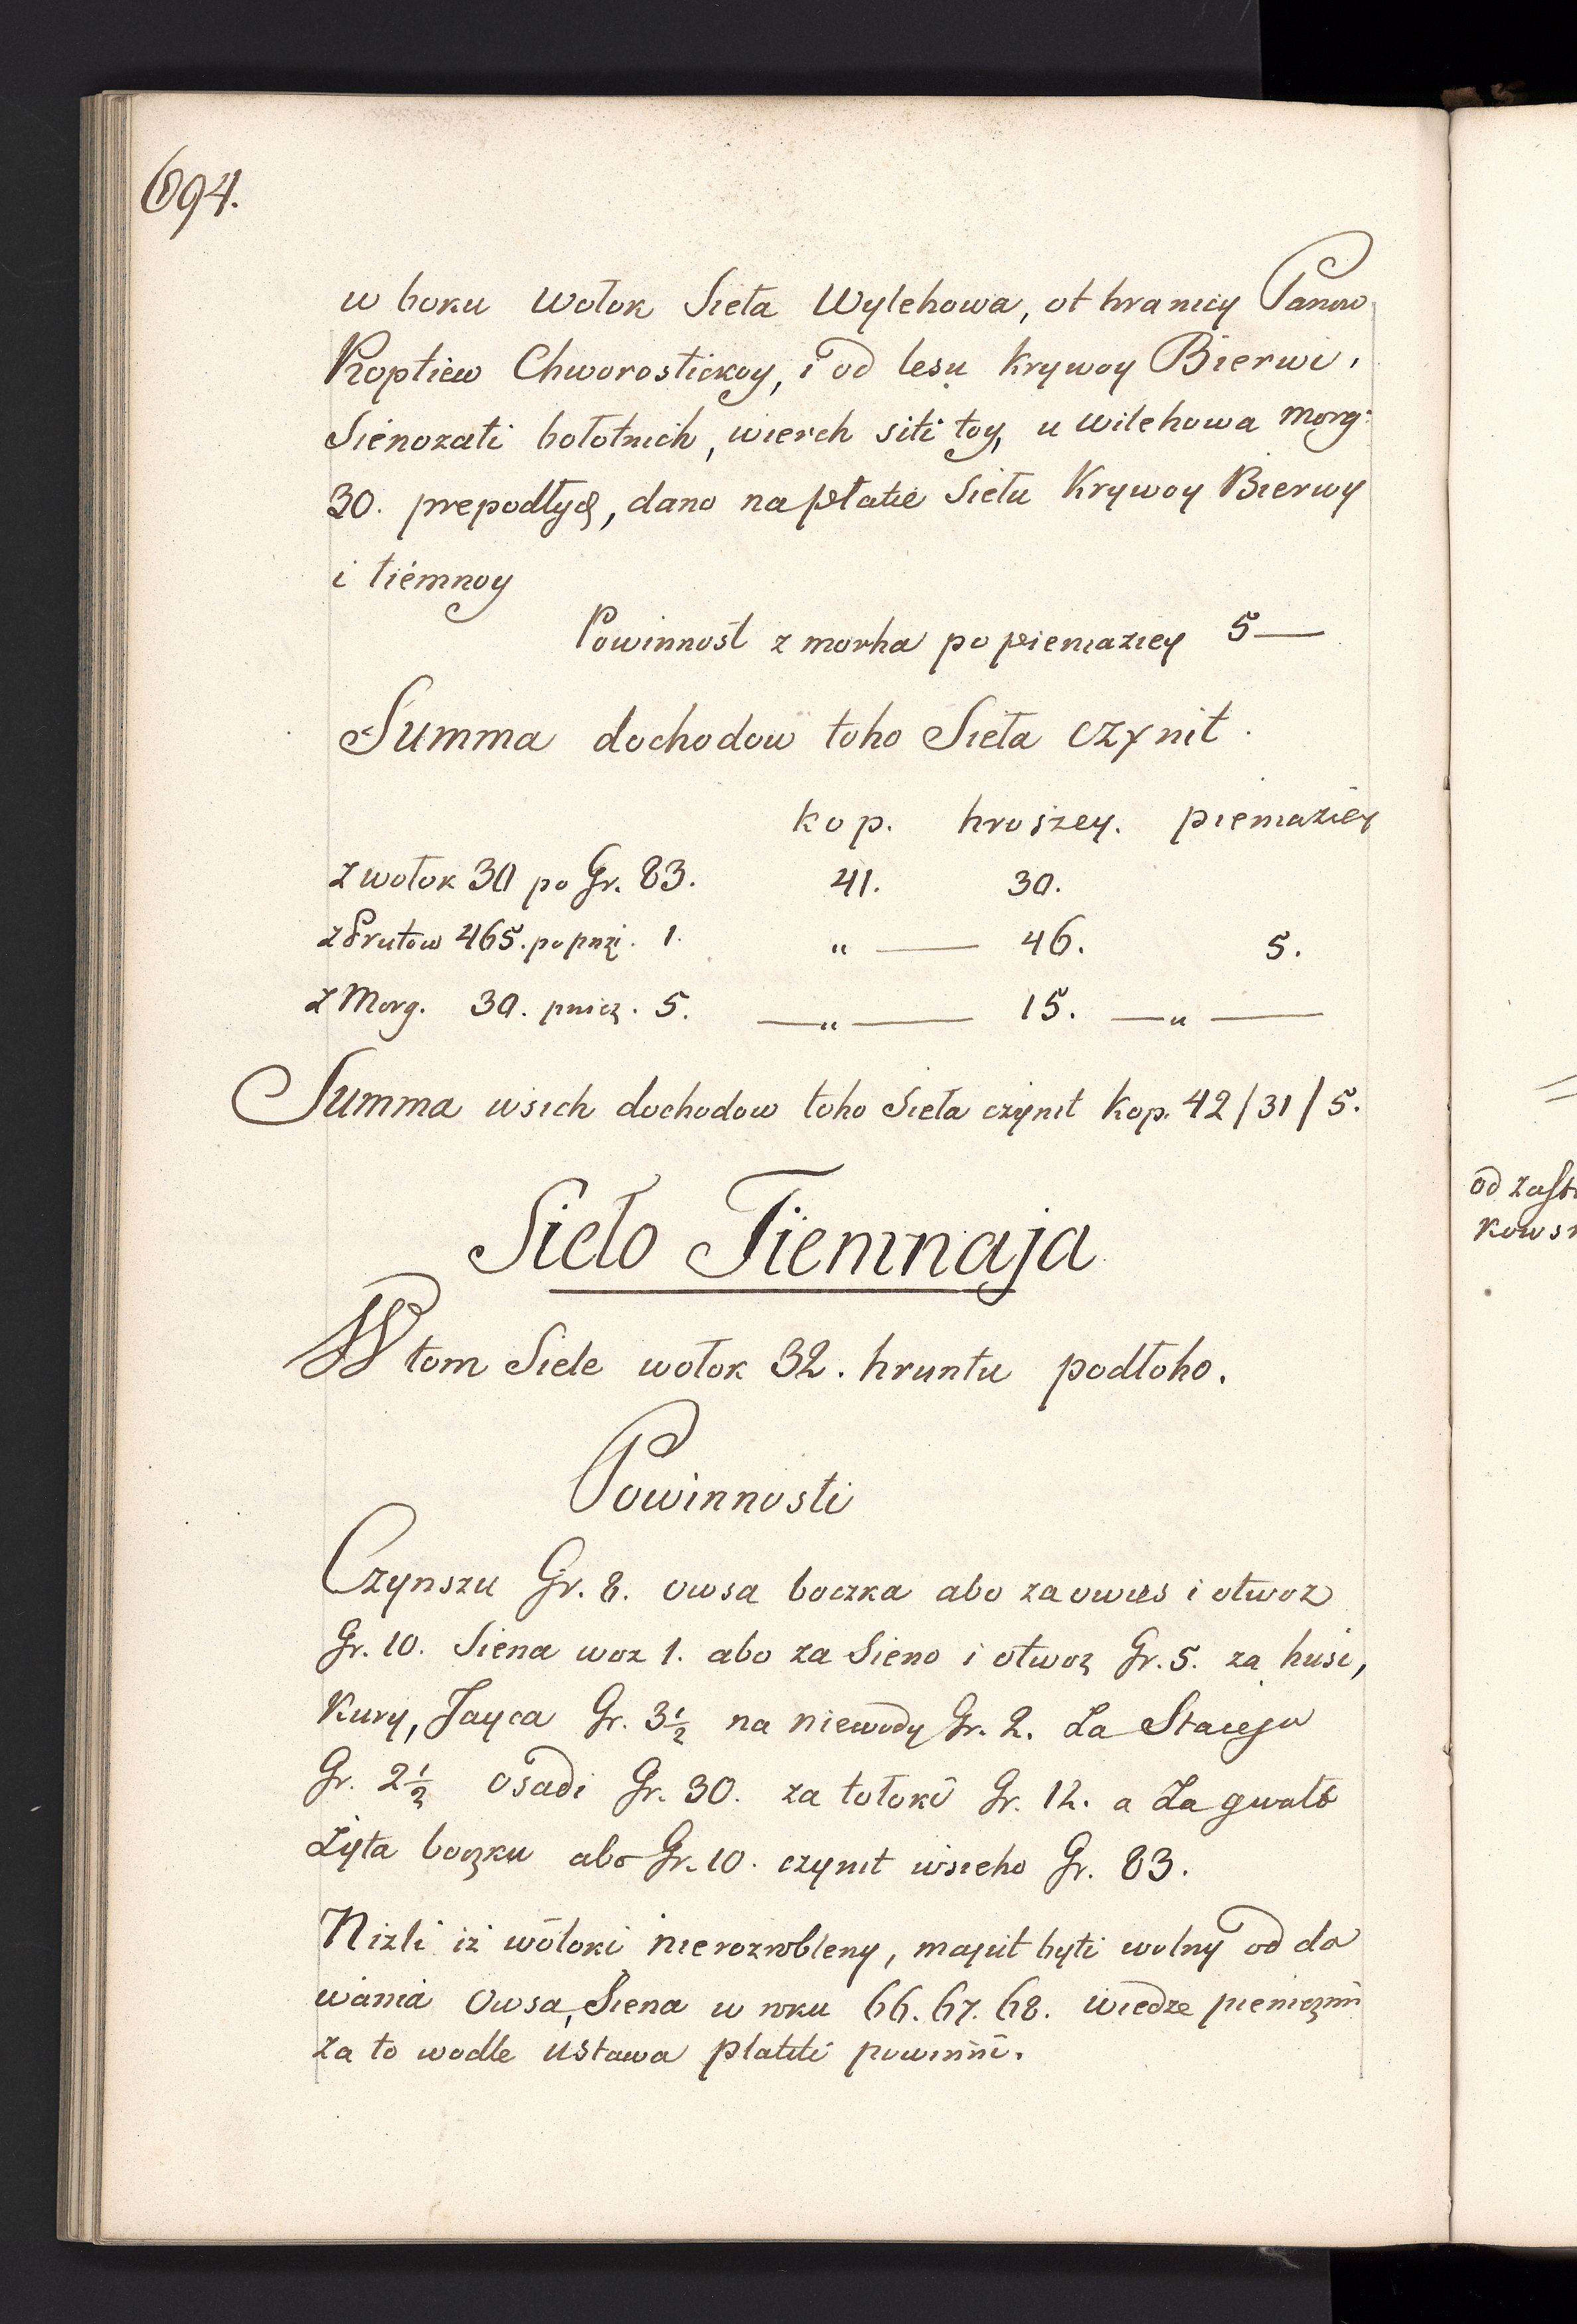 694.
w boku wołok Sieła Wylehowa, ot hranicy Panow
Koptiew Chworostickoy, i od lesu Krywoy Bierwi,
Sienozati bołotnich, wierch siti toy, u wilehowa morg:
30. prepodłych, dano na płatie Siełu Krywoy Bierwy
i tiemnoy
Powinnost z morha po pieniaziey 5—
Summa dochodow toho Sieła czynit.
kop. hroszey. pieniaziey
z wołok 30 po Gr. 83. 41. 30.
z Prutow 465. po pnzi. 1. " — 46. 5.
z Morg. 30. pnięz. 5. — " — 15. — " —
Summa wsich dochodow toho Sieła czynit kop. 42/31/5.
Sieło Tiemnaja
W tom Siele wołok 32. hruntu podłoho.
Powinnosti
Czynszu Gr. 8. owsa boczka abo za owies i otwoz
Gr. 10. Siena woz 1. abo za Sieno i otwoz Gr. 5. za husi,
Kury, Jayca Gr. 3½ na niewody Gr. 2. Za Staciju
Gr. 2½ osadi Gr. 30. za tołoki Gr. 12. a Za gwałt
Żyta boczku abo Gr. 10. czynit wsieho Gr. 83.
Niżli iż wołoki nierozrobleny, majut byti wolny od da
wania Owsa, Siena w roku 66. 67. 68. wiedze pienięzmi
za to wodle ustawa płatiti powinni.
od zast
kows